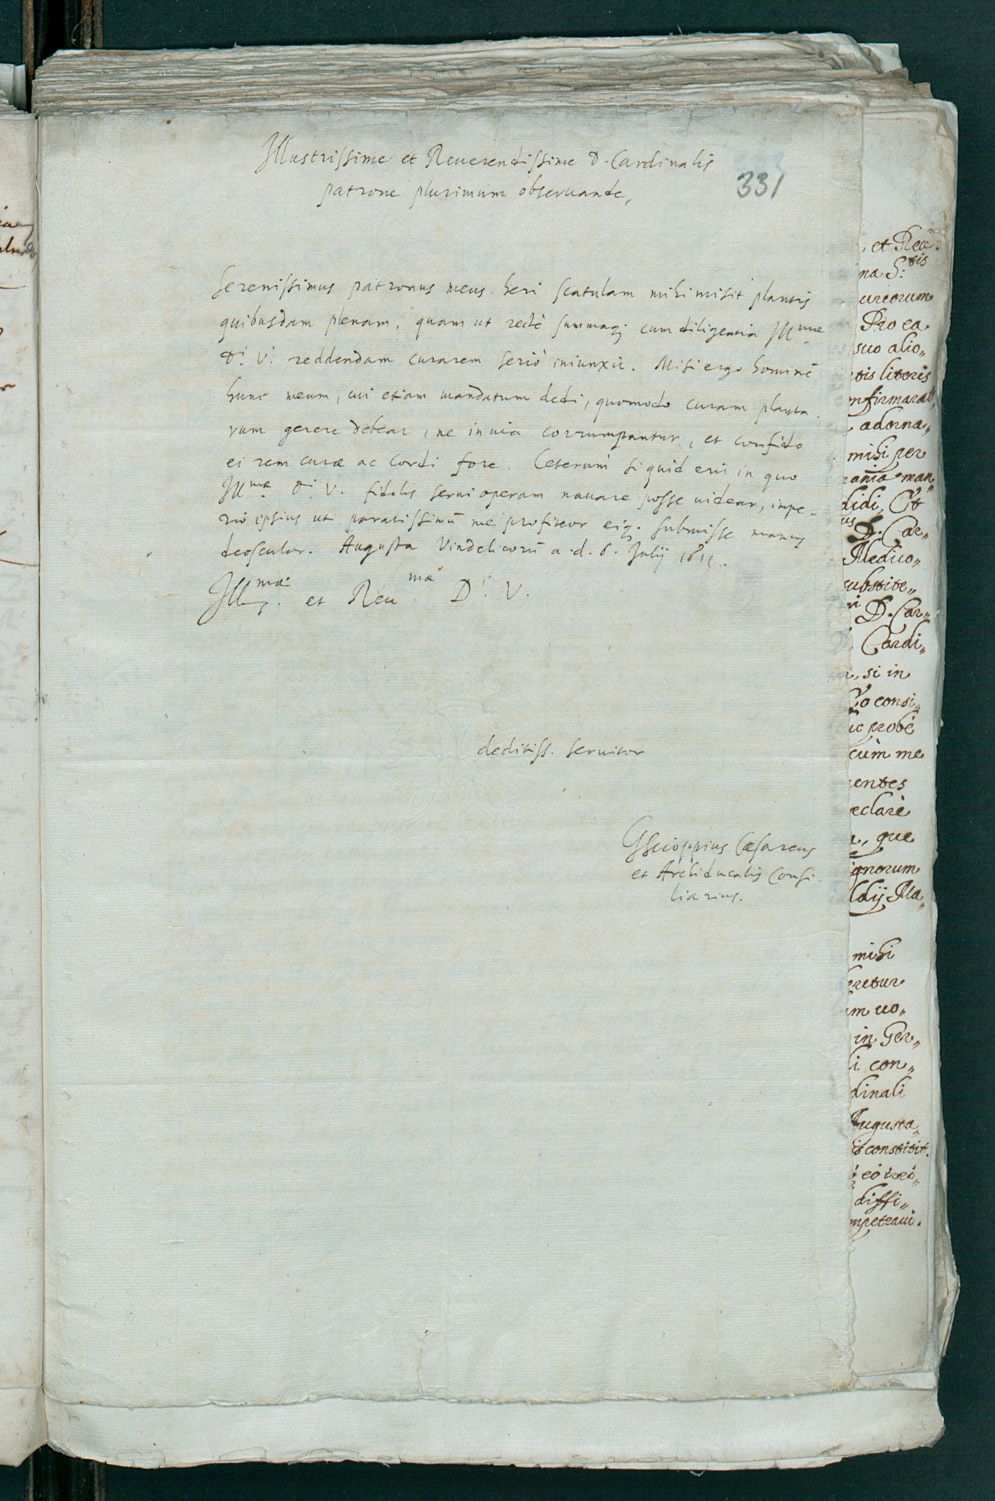 Illustrissime et Reuerendissime D. Cardinalis
patrone plurimum obseruande,
331
Serenissimus patronus meus heri scatulam mihi misit plantis
quibusdam plenam, quam ut rectè summaq; cum diligentia Illmae
Di. V. reddendam curarem seriò iniunxit. Misi ergo hominē
hunc meum, cui etiam mandatum dedi, quomodo curam planta-
rum gerere debeat, ne in uia corrumpantur, et confido
ei rem curæ ac cordi fore. Ceterum si quid erit in quo
Illma. Di. V. fidelis serui operam nauare posse uidear, impe-
rio ipsius ut paratissimū me profiteor eiq; submisse manus
deosculor. Augusta Vindelicorū a.d. 6. Julij 1611.
Illmæ. et Reumæ. Di. V.
deditiss. seruitor
GScioppius Cæsareus
et Archiducalis Consi-
liarius.
et Reue.
ureorum
Pro ea
suo alio„
tis literis
adorna„
mihi per
D. Car„
Medico„
substite„
D. Car„
Cardi„
si in
consi„
probè
cùm me
entes
eclarè
que
mihi
eretur
uo„
in Ger„
con„
dinali
Augusta„
constitit.
diffi„